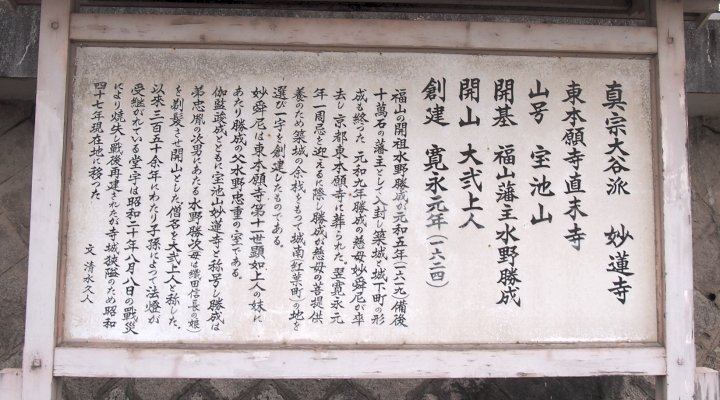 真宗大谷派 妙蓮寺
東本願寺直末寺
山号 宝池山
開基 福山藩主水野勝成
開山 大弐上人
創建 寛永元年(一六二四)
福山の開祖水野勝成が元和五年(一六一九)備後
十萬石の藩主として入封し築城、城下町の形
成も終った。元和九年勝成の慈母妙舜尼が卒
去し京都東本願寺に葬られた。翌寛永元
年一周忌を迎えるに際し勝成が慈母の菩提供
養のため築城の余材をもって城南(紅葉町)の地を
選び一宇を創建したものである。
妙舜尼は東本願寺第十一世顕如上人の妹に
あたり勝成の父水野忠重の室である。
伽藍竣成とともに宝池山妙蓮寺と称号し勝成は
弟忠胤の次男にあたる水野勝次(母は織田信長の娘)
を剃髪させ開山とした。僧名を大弐上人と称した。
以来三百五十余年にわたり子孫によって法燈が
受継がれている。堂宇は昭和二十年八月八日の戰災
により焼失し戰後再建されたが寺域狭隘のため昭和
四十七年現在地に移った。
文 清水久人